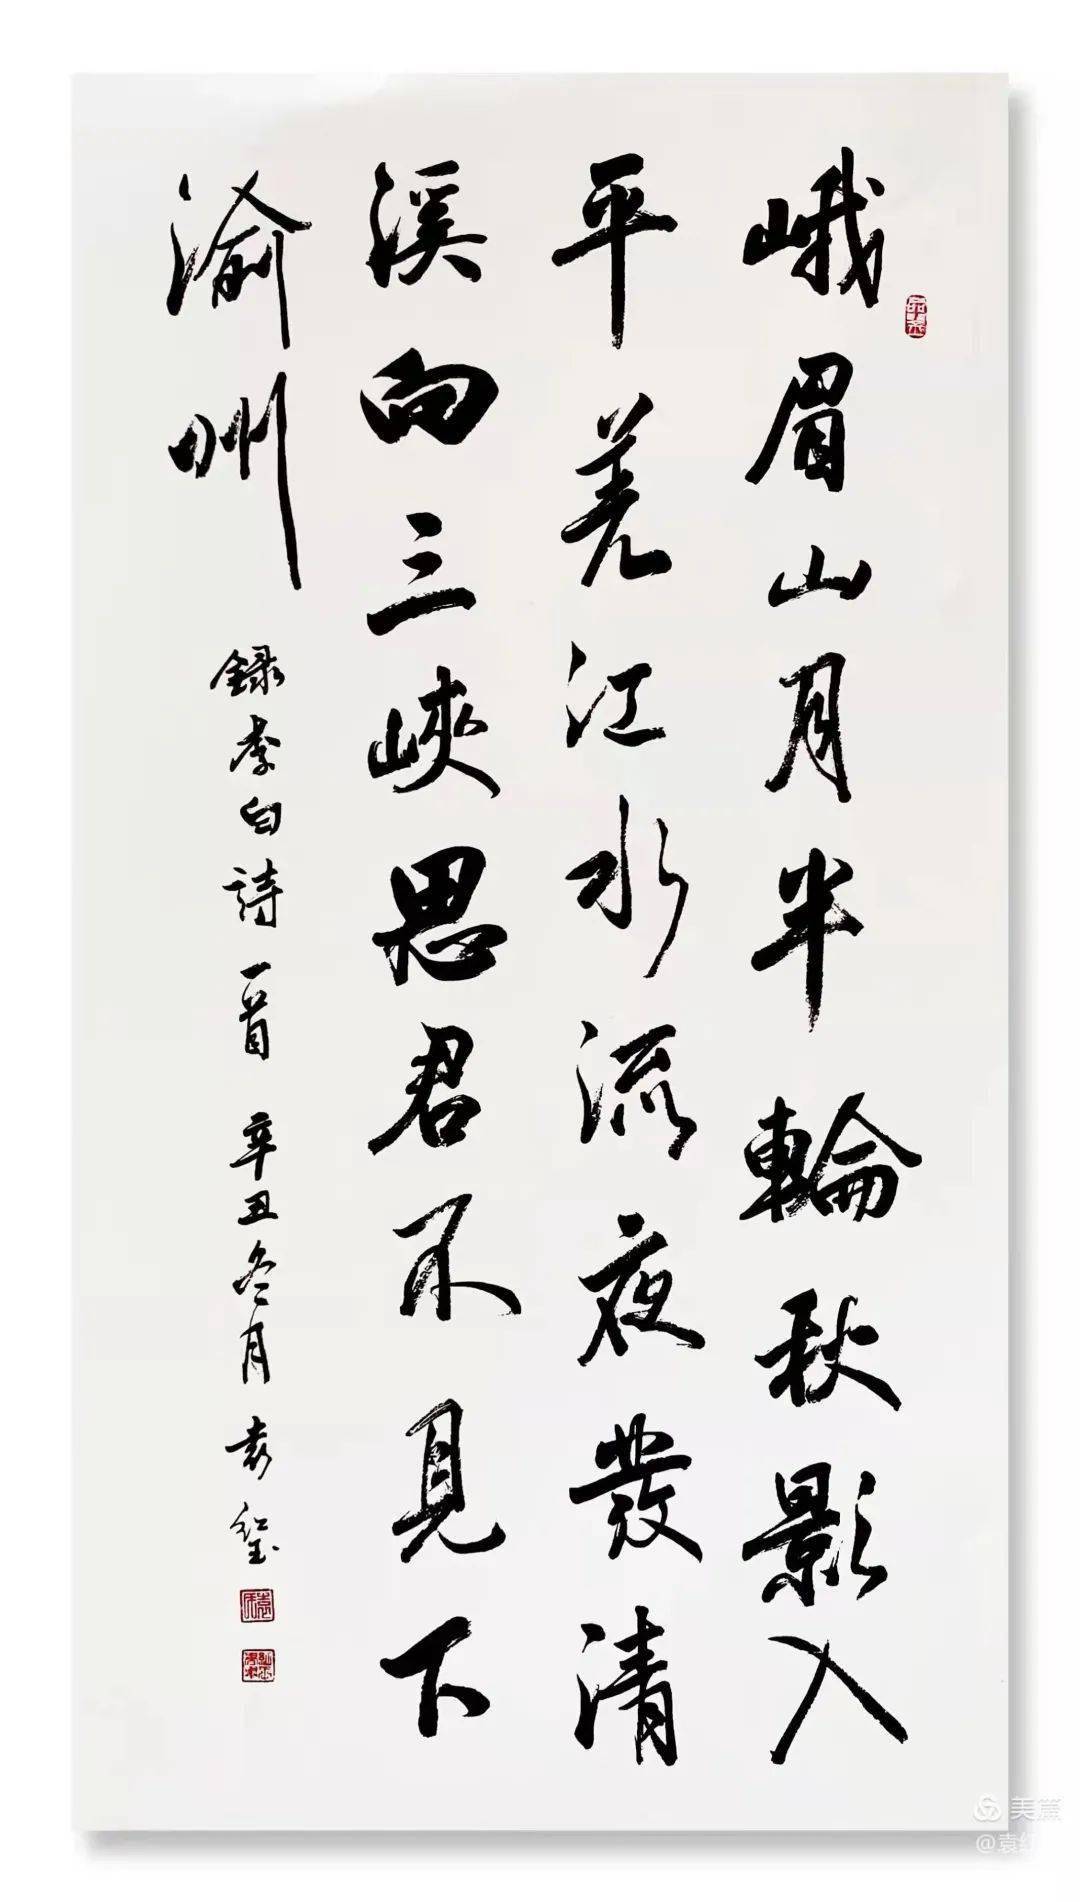 峨眉山月半輪秋影入
平羌江水流夜發清
溪向三峽思君不見下
渝州
録李白詩一首 辛丑冬月 袁红玉
美篇
@袁红